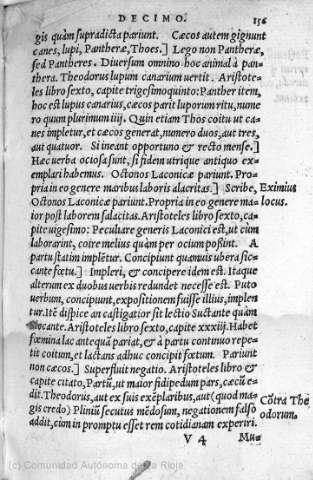 DECIMO. 156
gis quàm supradicta pariunt. Cæcos autem gignunt
canes, lupi, Pantheræ, Thoes.] Lego non Pantheræ,
sed Pantheres. Diuersum omnino hoc animal à pan-
thera. Theodorus lupum canarium uertit. Aristote-
les libro sexto, capite trigesimoquinto: Panther item,
hoc est lupus canarius, cæcos parit luporum ritu, nume
ro quum plurimum iiij. Quin etiam Thos coitu ut ca-
nes impletur, et cæcos generat, numero duos, aut tres,
aut quatuor. Si ineant opportuno & recto mense.]
Hæc uerba ociosa sunt, si fidem utrique antiquo ex-
emplari habemus. Octonos Laconicæ pariunt. Pro-
pria in eo genere maribus laboris alacritas.] Scribe,
Octonos Laconicæ pariunt. Propria in eo genere ma-
ior post laborem salacitas. Aristoteles libro sexto, ca-
pite uigesimo: Peculiare generis Laconici est, ut cùm
laborarint, coire melius quàm per ocium poßint. A
partu statim impletur. Concipiunt quamuis ubera sic-
cante fœtu.] Impleri, & concipere idem est. Itaque
alterum ex duobus uerbis redundet necesse est. Puto
uerbum, concipiunt, expositionem fuisse illius, implen
tur. Itê dispice an castigatior sit lectio Suctante quàm
siccante. Aristoteles libro sexto, capite xxxiij. Habet
fœmina lac antequã pariat, & à partu continuo repe-
tit coitum, et lactans adhuc concipit fœtum. Pariunt
non cæcos.] Superfluit negatio. Aristoteles libro &
capite citato, Partũ, ut maior fidipedum pars, cæcũ e-
dit. Theodorus, aut ex suis exẽplaribus, aut (quod ma-
gis credo) Plinũ secutus mẽdosum, negationem falso
addit, cùm in promptu esset rem cotidianam experiri.
V 4 Mu-
Eximius
locus.
Cõtra The
odorum.